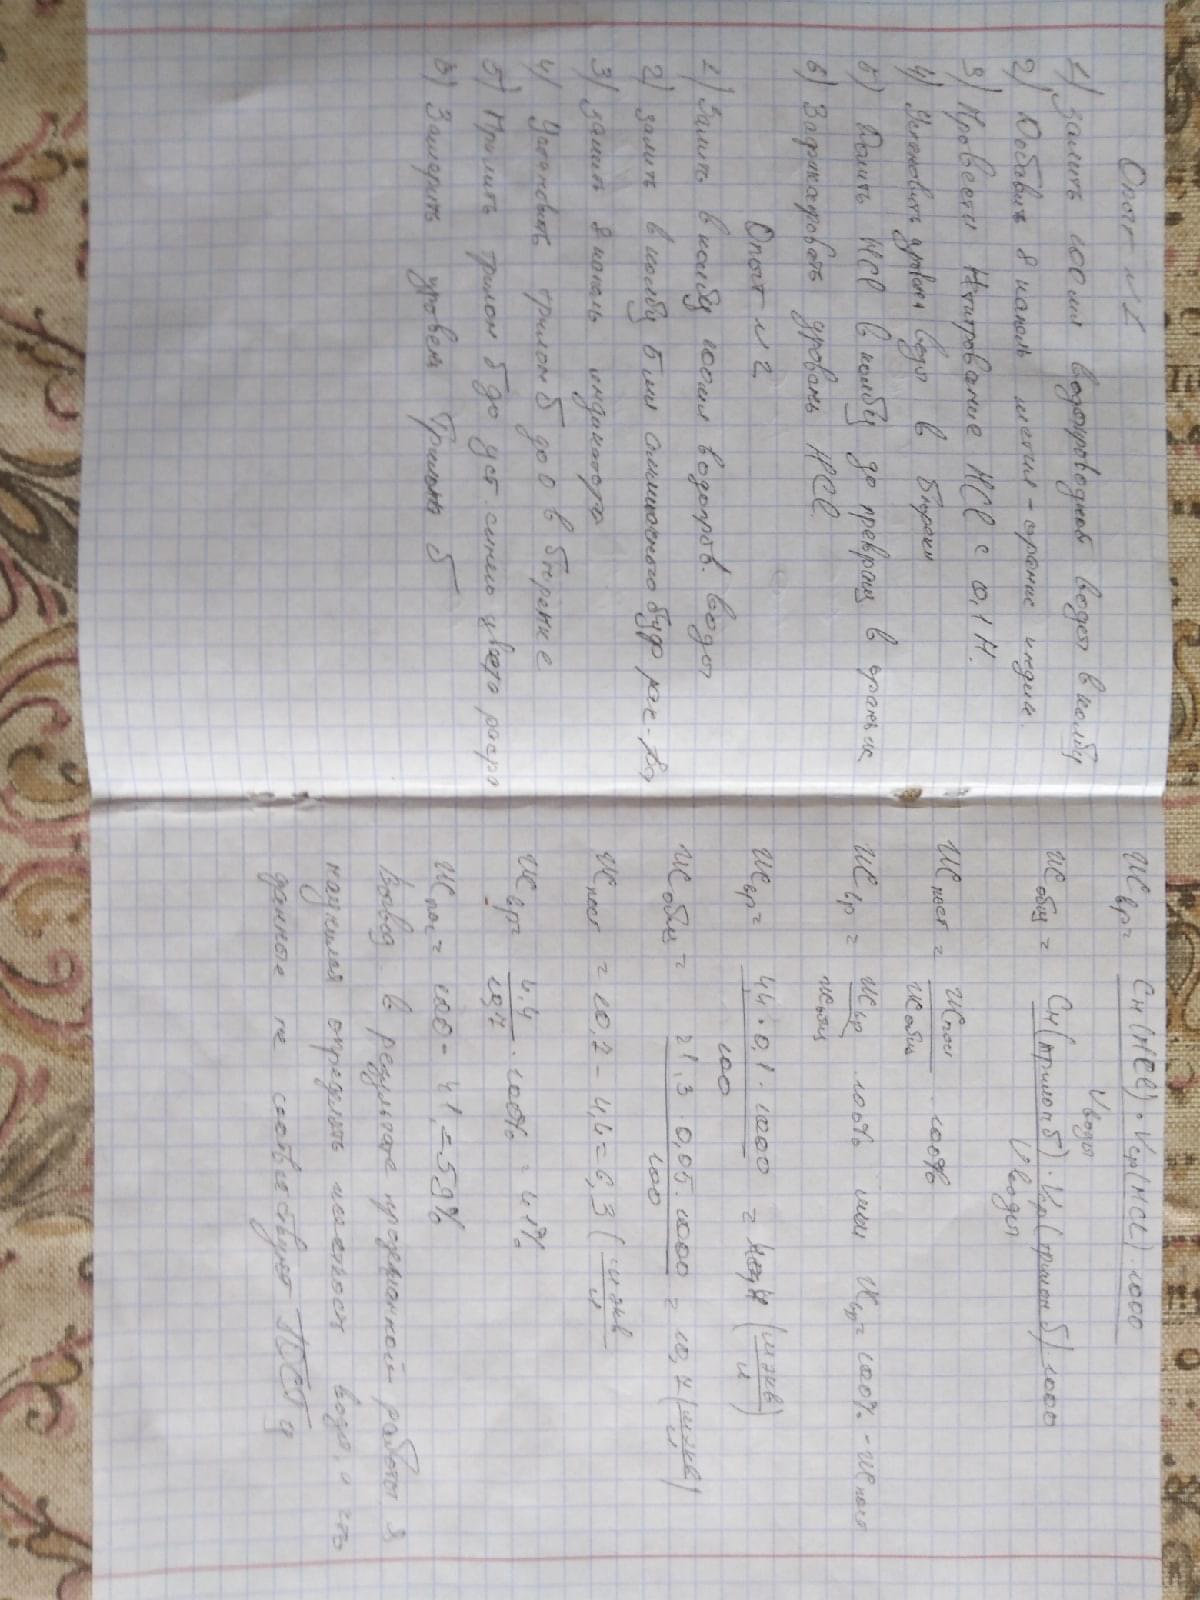 Опыт №1
1) Залить 100 мл водопроводной воды в колбу
2) Добавить 8 капель метил-оранж индик.
3) Провести Нтитрование HCl с 0,1 Н.
4) Установить уровень воды в бюретки
5) Долить HCl в колбу до превращ в оранжев
6) Зафиксировать уровень HCl.
Опыт №2
1) Залить в колбу 100 мл водопров. воды
2) залить в колбу 5 мл аммиачного буф рас-ва
3) залить 8 капель индикатора
4) Установить трилон Б до 0 в бюретке
5) Прилить трилон Б до уст. синего цвета раство
6) Замерить уровень Трилона Б
Жвр = Сн(HCl)·Vр(HCl)·1000 / Vводы
Жобщ = Сн(трилон Б)·Vр(трилон Б)·1000 / Vводы
Жпост = Жпост / Жобщ · 100%
Жвр = Жвр / Жобщ 100% или Жвр = 100% - Жпост
Жвр = 44·0,1·1000 / 100 = (мэкв / л)
Жобщ = 21,3·0,05·1000 / 100 = 10,7 (мэкв / л)
Жпост = 10,7 - 4,4 = 6,3 (мэкв / л)
Жвр = 4,4 / 10,7 · 100% = 41%
Жпос = 100 - 41 = 59%
Вывод: в результате проделанной работы я
научился определять жесткость воды, и что
данные не соответствуют ГОСТу